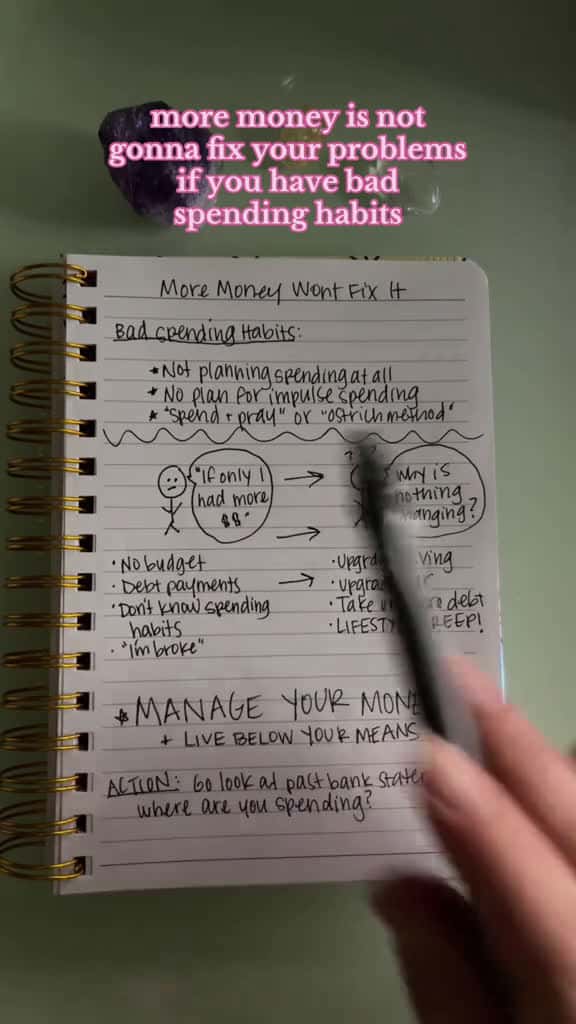 more money is not
gonna fix your problems
if you have bad
spending habits
More Money Wont Fix It
Bad spending Habits:
* Not planning spending at all
* No plan for impulse spending
* "spend + pray" or "ostrich method"
"If only I
had more
$$"
why is
nothing
changing?
· No budget
· Debt payments
· Don't know spending
habits
· "I'm broke"
· upgrade living
· upgrade
· Take debt
· LIFESTYLE CREEP!
* MANAGE YOUR MONEY
+ LIVE BELOW YOUR MEANS
ACTION: Go look at past bank
where are you spending?